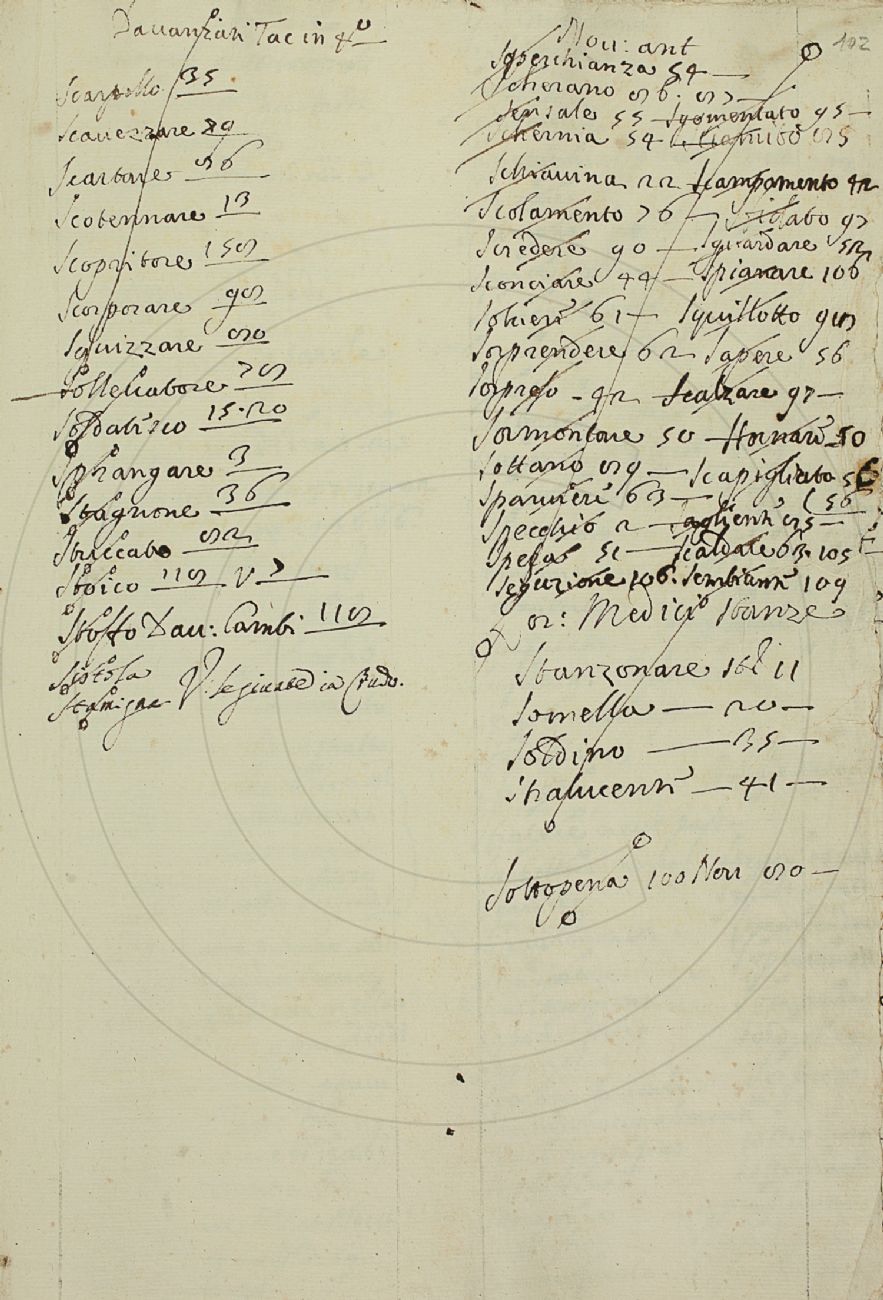 Dauanzati Tac in 4º
Scartello 35
Scauezzare 29
Scartare 56
Scotennare 13
Scopritore 158
Scorporare 98
Squizzare 80
Solleuatore 78
Soldatesco 15. 20
Sphangare 3
Stagnone 36
Steccato 82
Stoico 118 V 7
Stoffo Dau: Cambi 118
Sistola
Stamigna V. le giunte di Crudo.
402
Nou: ant
Soperchianza 54
Scherano 86. 87
Sensale 55 Sgomentato 95
Schernia 54
Schiauina 22 Scampamento 42
Scolamento 76 97
Scredere 90 Sguardare 52
Sconciare 44 Spianare 106
Soluere 61 Squillotto 98
Sorprendere 62 Sapere 56
Sorpreso 42 Scalzare 97
Sormontare 50 50
Sottano 89 Scapigliato 56
Sparuiere 63 (56
Specchio 2 85
Spesa 51 Scaldate 63. 105
Seguzione 106. Sembiante 109
or: Medici Stanze
Stanzonare 11
Somella 20
Soldino 35
Stralucenti 41
Sottopena 100 Nou 80